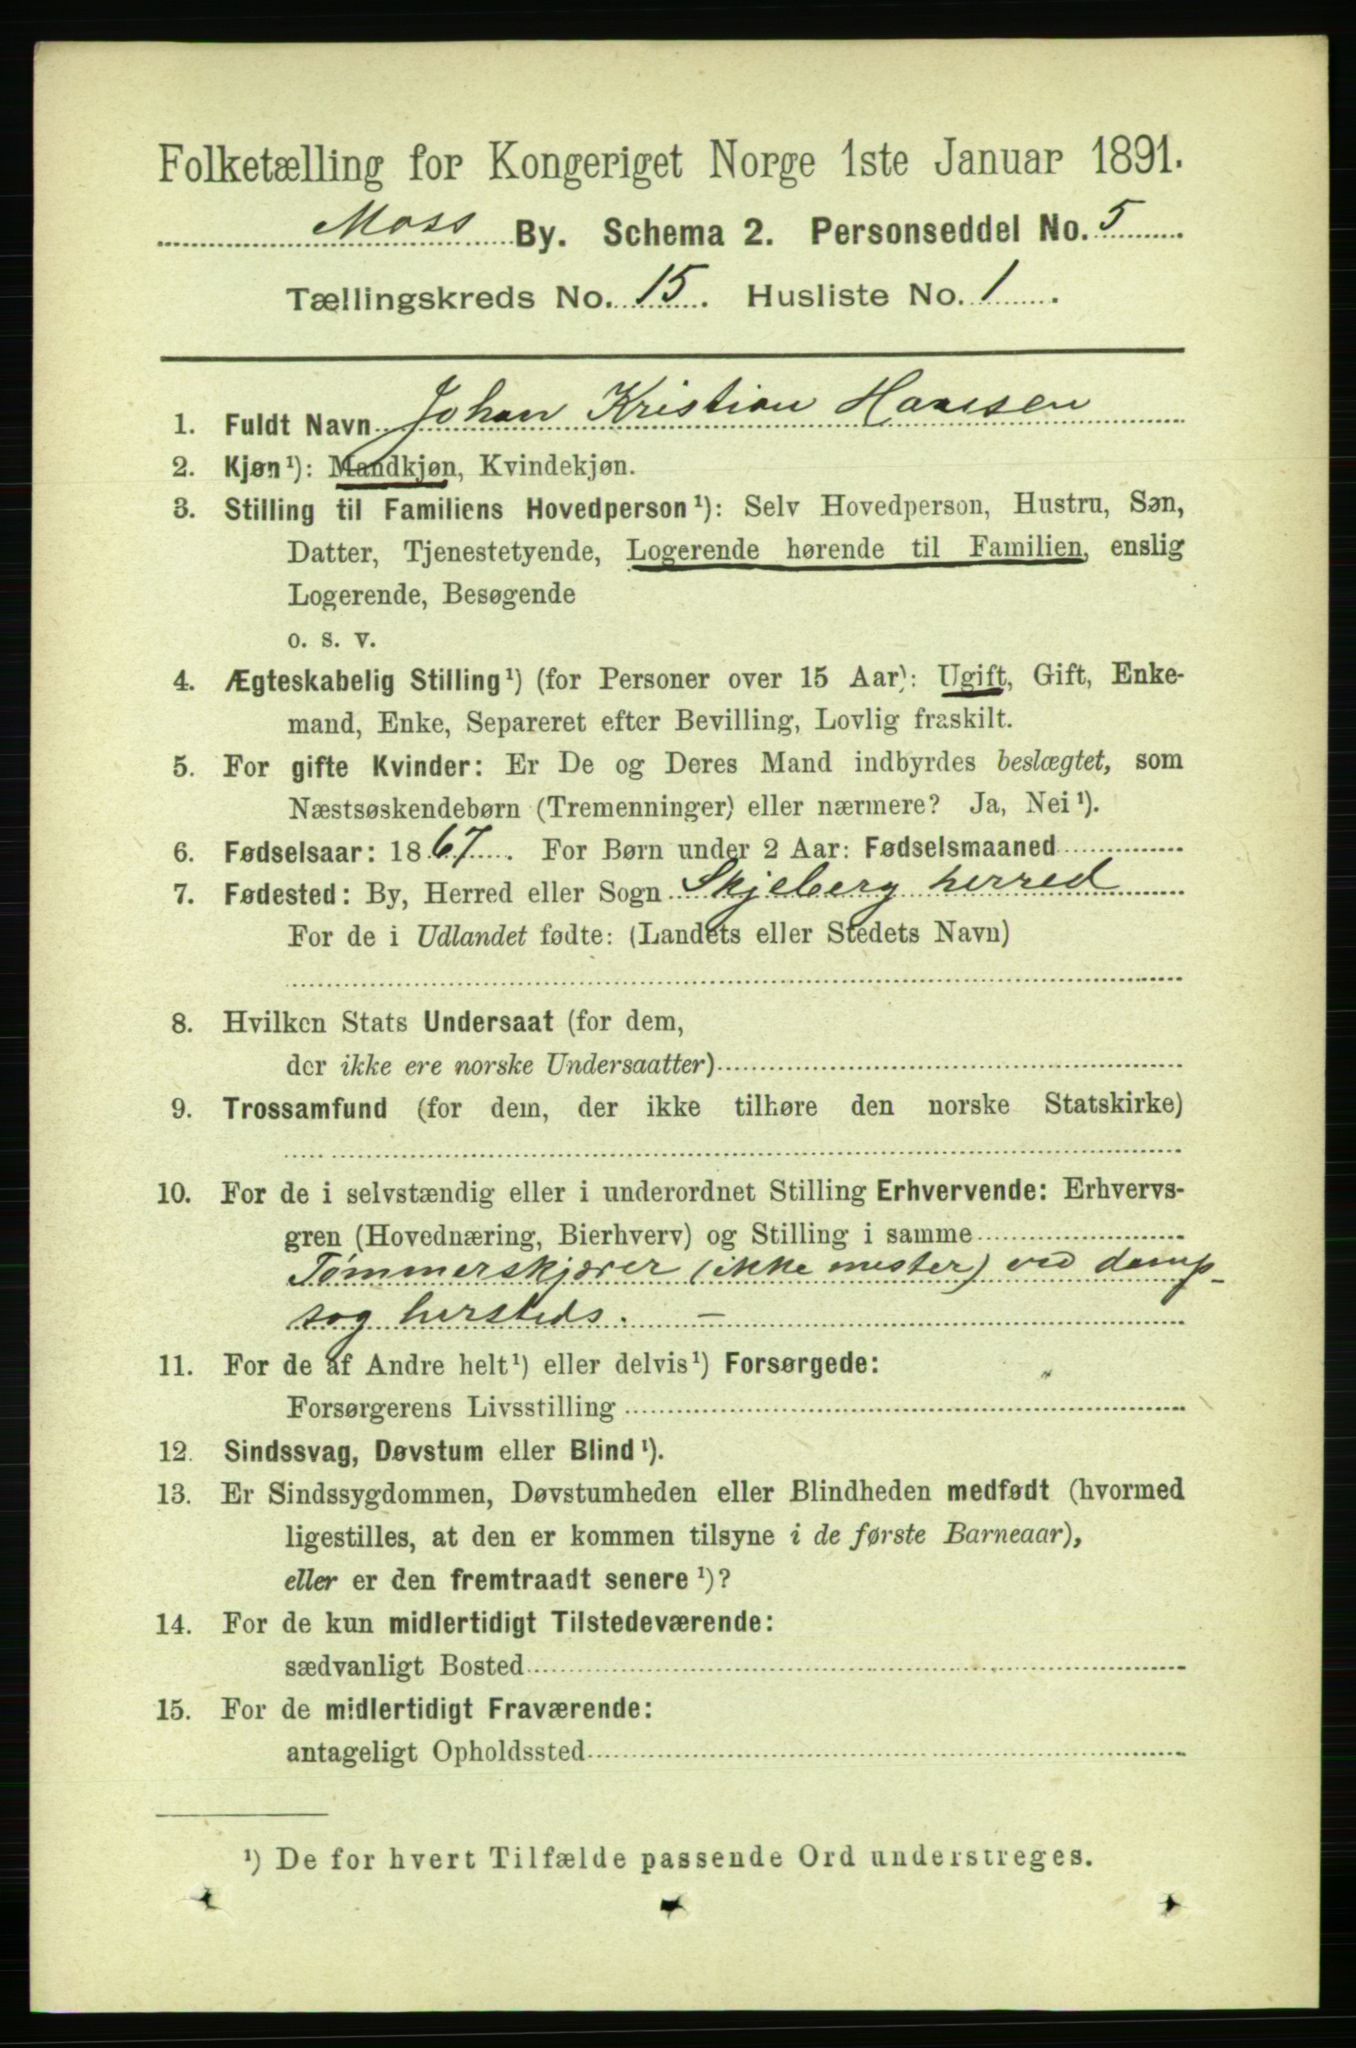 Folketælling for Kongeriget Norge 1ste Januar 1891.
Moss By. Schema 2. Personseddel No. 5
Tællingskreds No. 15. Husliste No. 1.
1. Fuldt Navn Johan Kristian Hansen
2. Kjøn¹): Mandkjøn, Kvindekjøn.
3. Stilling til Familiens Hovedperson¹): Selv Hovedperson, Hustru, Søn,
Datter, Tjenestetyende, Logerende hørende til Familien, enslig
Logerende, Besøgende
o. s. v.
4. Ægteskabelig Stilling¹) (for Personer over 15 Aar): Ugift, Gift, Enke-
mand, Enke, Separeret efter Bevilling, Lovlig fraskilt.
5. For gifte Kvinder: Er De og Deres Mand indbyrdes beslægtet, som
Næstsøskendebørn (Tremenninger) eller nærmere? Ja, Nei¹).
6. Fødselsaar: 1867. For Børn under 2 Aar: Fødselsmaaned
7. Fødested: By, Herred eller Sogn Skjeberg herred
For de i Udlandet fødte: (Landets eller Stedets Navn)
8. Hvilken Stats Undersaat (for dem,
der ikke ere norske Undersaatter)
9. Trossamfund (for dem, der ikke tilhøre den norske Statskirke)
10. For de i selvstændig eller i underordnet Stilling Erhvervende: Erhvervs-
gren (Hovednæring, Bierhverv) og Stilling i samme
Tømmerskjærer (ikke mester) ved damp-
sag hersteds. –
11. For de af Andre helt¹) eller delvis¹) Forsørgede:
Forsørgerens Livsstilling
12. Sindssvag, Døvstum eller Blind¹).
13. Er Sindssygdommen, Døvstumheden eller Blindheden medfødt (hvormed
ligestilles, at den er kommen tilsyne i de første Barneaar),
eller er den fremtraadt senere¹)?
14. For de kun midlertidigt Tilstedeværende:
sædvanligt Bosted
15. For de midlertidigt Fraværende:
antageligt Opholdssted
¹) De for hvert Tilfælde passende Ord understreges.